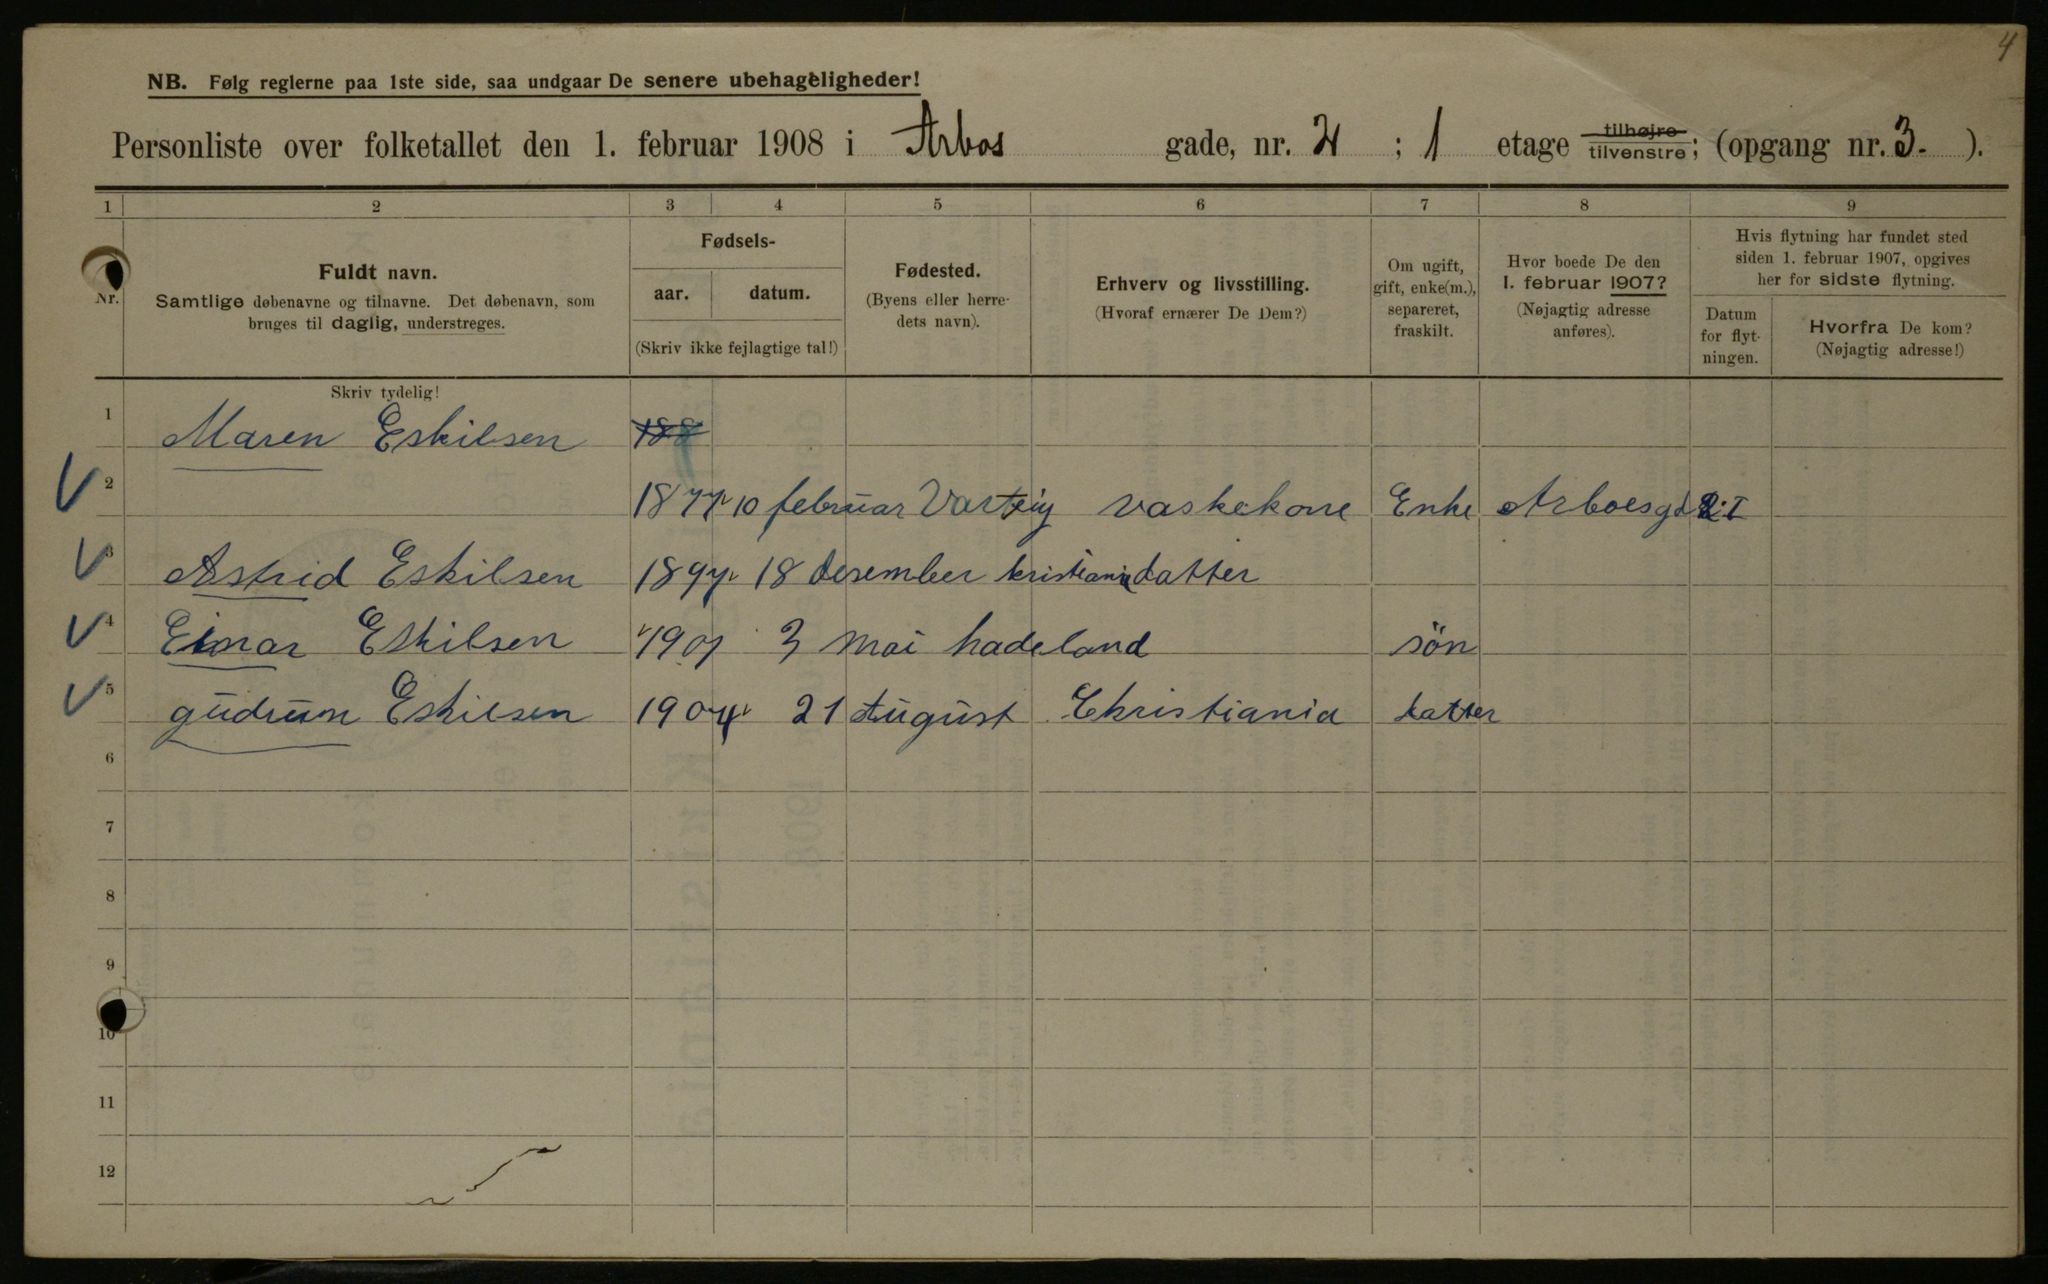 4
NB. Følg reglerne paa 1ste side, saa undgaar De senere ubehageligheder!
Personliste over folketallet den 1. februar 1908 i Arbos gade, nr. 2 ; 1 etage tilhøjre tilvenstre; (opgang nr. 3. ).
1 2 3 4 5 6 7 8 9
Nr.
Fuldt navn.
Samtlige døbenavne og tilnavne. Det døbenavn, som
bruges til daglig, understreges.
Fødsels-
aar. datum.
(Skriv ikke fejlagtige tal!)
Fødested.
(Byens eller herre-
dets navn).
Erhverv og livsstilling.
(Hvoraf ernærer De Dem?)
Om ugift,
gift, enke(m.),
separeret,
fraskilt.
Hvor boede De den
1. februar 1907?
(Nøjagtig adresse
anføres).
Hvis flytning har fundet sted
siden 1. februar 1907, opgives
her for sidste flytning.
Datum
for flyt-
ningen.
Hvorfra De kom?
(Nøjagtig adresse!)
Skriv tydelig!
1 Maren Eskilsen 188
2 1877 10 februar Varteig vaskekone Enke Arboesgd 2:I
3 Astrid Eskilsen 1897 18 desember kristiania datter
4 Einar Eskilsen 1901 3 Mai hadeland søn
5 gudrun Eskilsen 1904 21 August Ckristiania datter
6
7
8
9
10
11
12